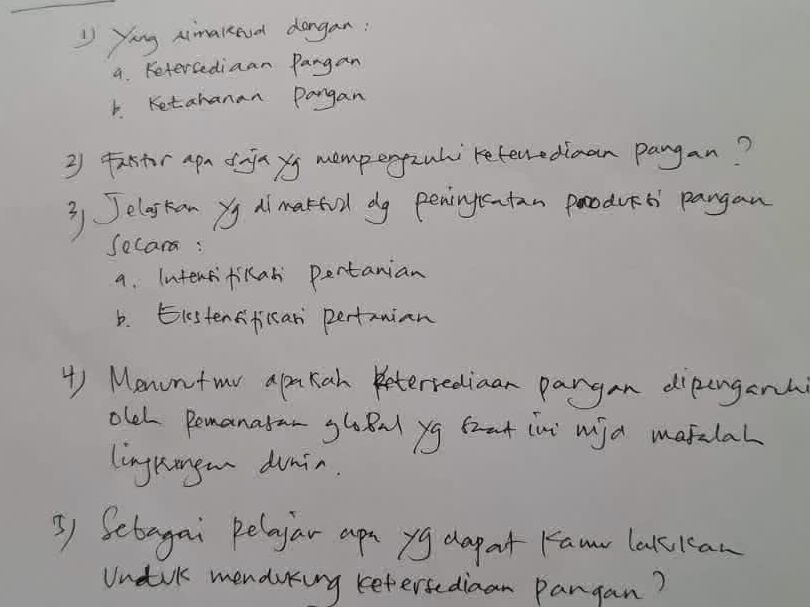 1) Yang dimaksud dengan :
a. Ketersediaan Pangan
b. Ketahanan Pangan
2) Faktor apa saja yg mempengaruhi ketersediaan pangan ?
3) Jelaskan yg dimaksud dg peningkatan produksi pangan
secara :
a. Intensifikasi Pertanian
b. Ekstensifikasi pertanian
4) Menurutmu apakah ketersediaan pangan dipengaruhi
oleh Pemanasan global yg saat ini mjd masalah
lingkungan dunia.
5) Sebagai Pelajar apa yg dapat kamu lakukan
Untuk mendukung ketersediaan pangan ?